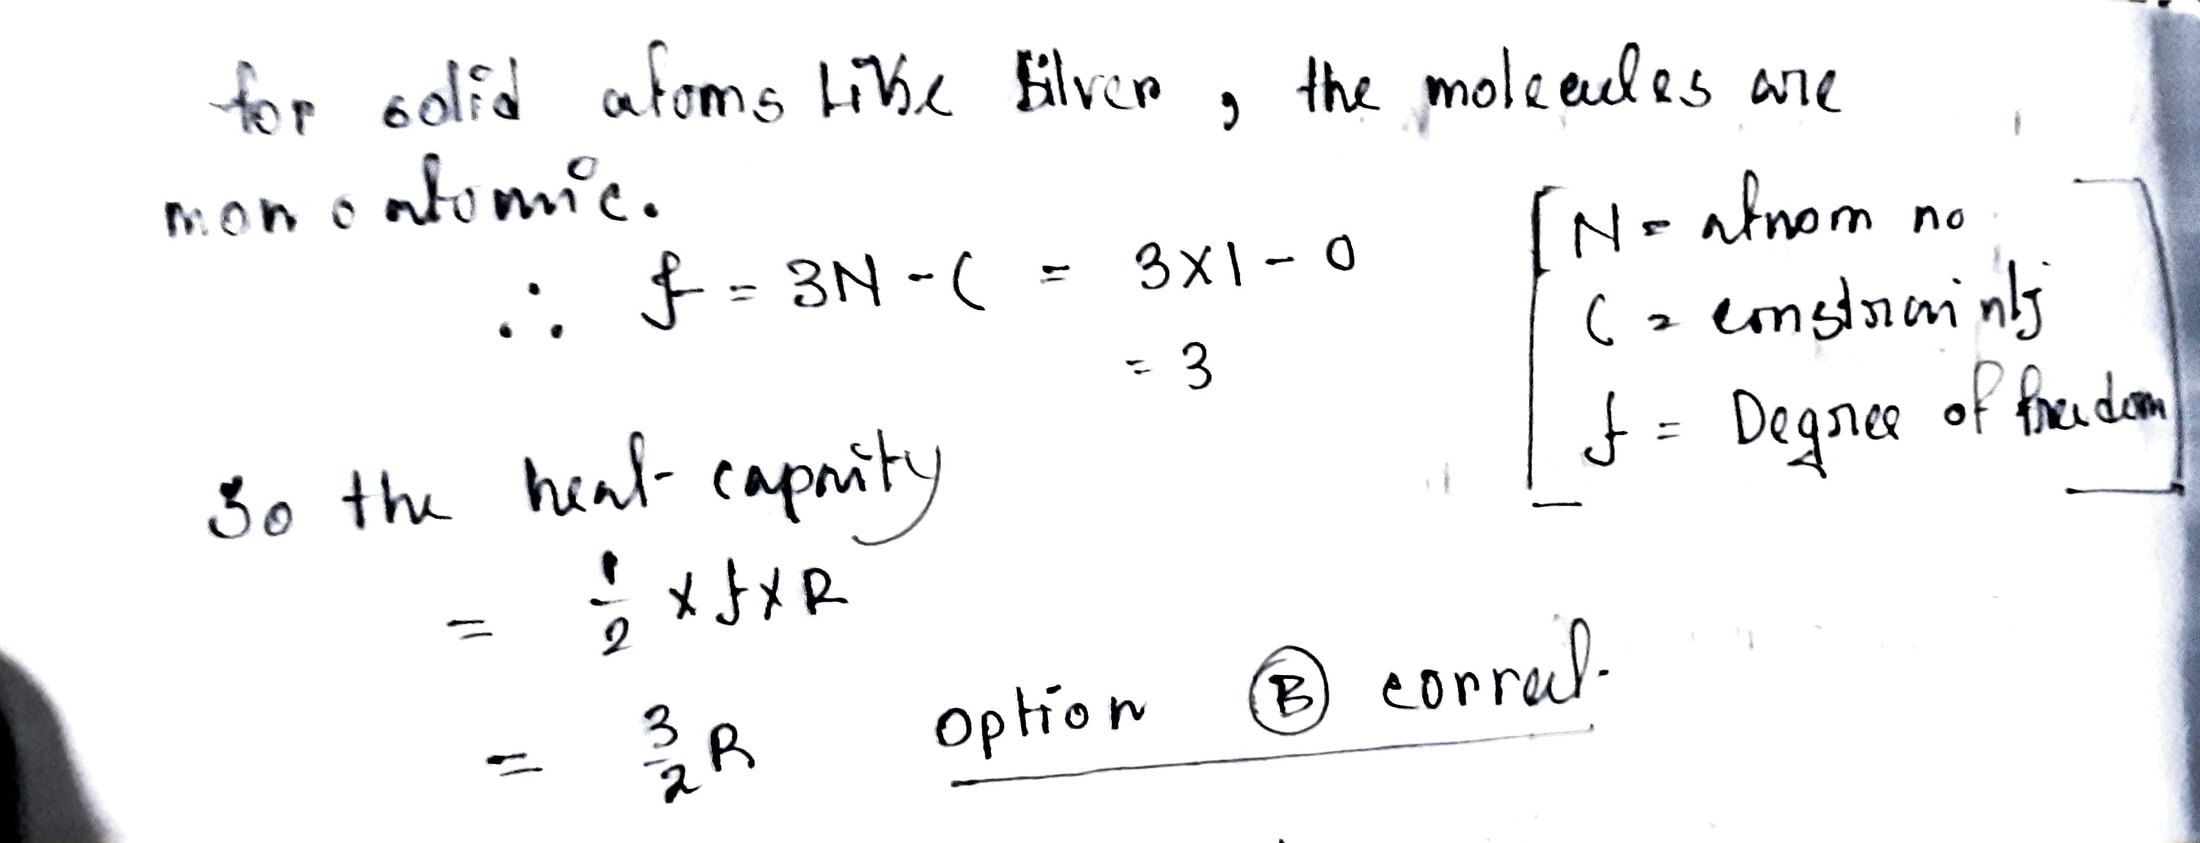 for solid atoms like silver, the molecules are
monoatomic.
∴ f = 3N - C = 3×1 - 0
= 3
[N = atom no.
C = constraints
f = Degree of freedom]
So the heat capacity
= 1/2 × f × R
= 3/2 R
option Ⓑ correct.